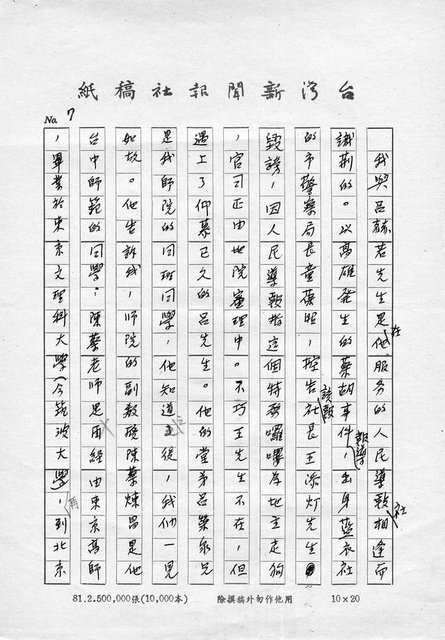 台灣新聞報社稿紙
No. 7
我與呂赫若先生是在他服務的人民導報社相逢而
識荊的。以高雄發生的蔡胡事件,報導出身藍衣社
的市警察局長童葆昭,控告該報社長王添灯先生
毀謗,因人民導報指這個特務囉嘍為地主走狗
,官司正由地院審理中。不巧王先生不在,但
遇上了仰慕已久的呂先生。他的堂弟呂榮泉兄
是我師院的同班同學,他知道後,我們一見
如故。他告訴我,師院的副教授陳蔡煉昌是他
台中師範的同學;陳蔡老師是經由東京高師
,畢業於東京文理科大學(今筑波大學,再到北京
81.2.500,000張(10,000本) 除撰稿外勿作他用 10×20